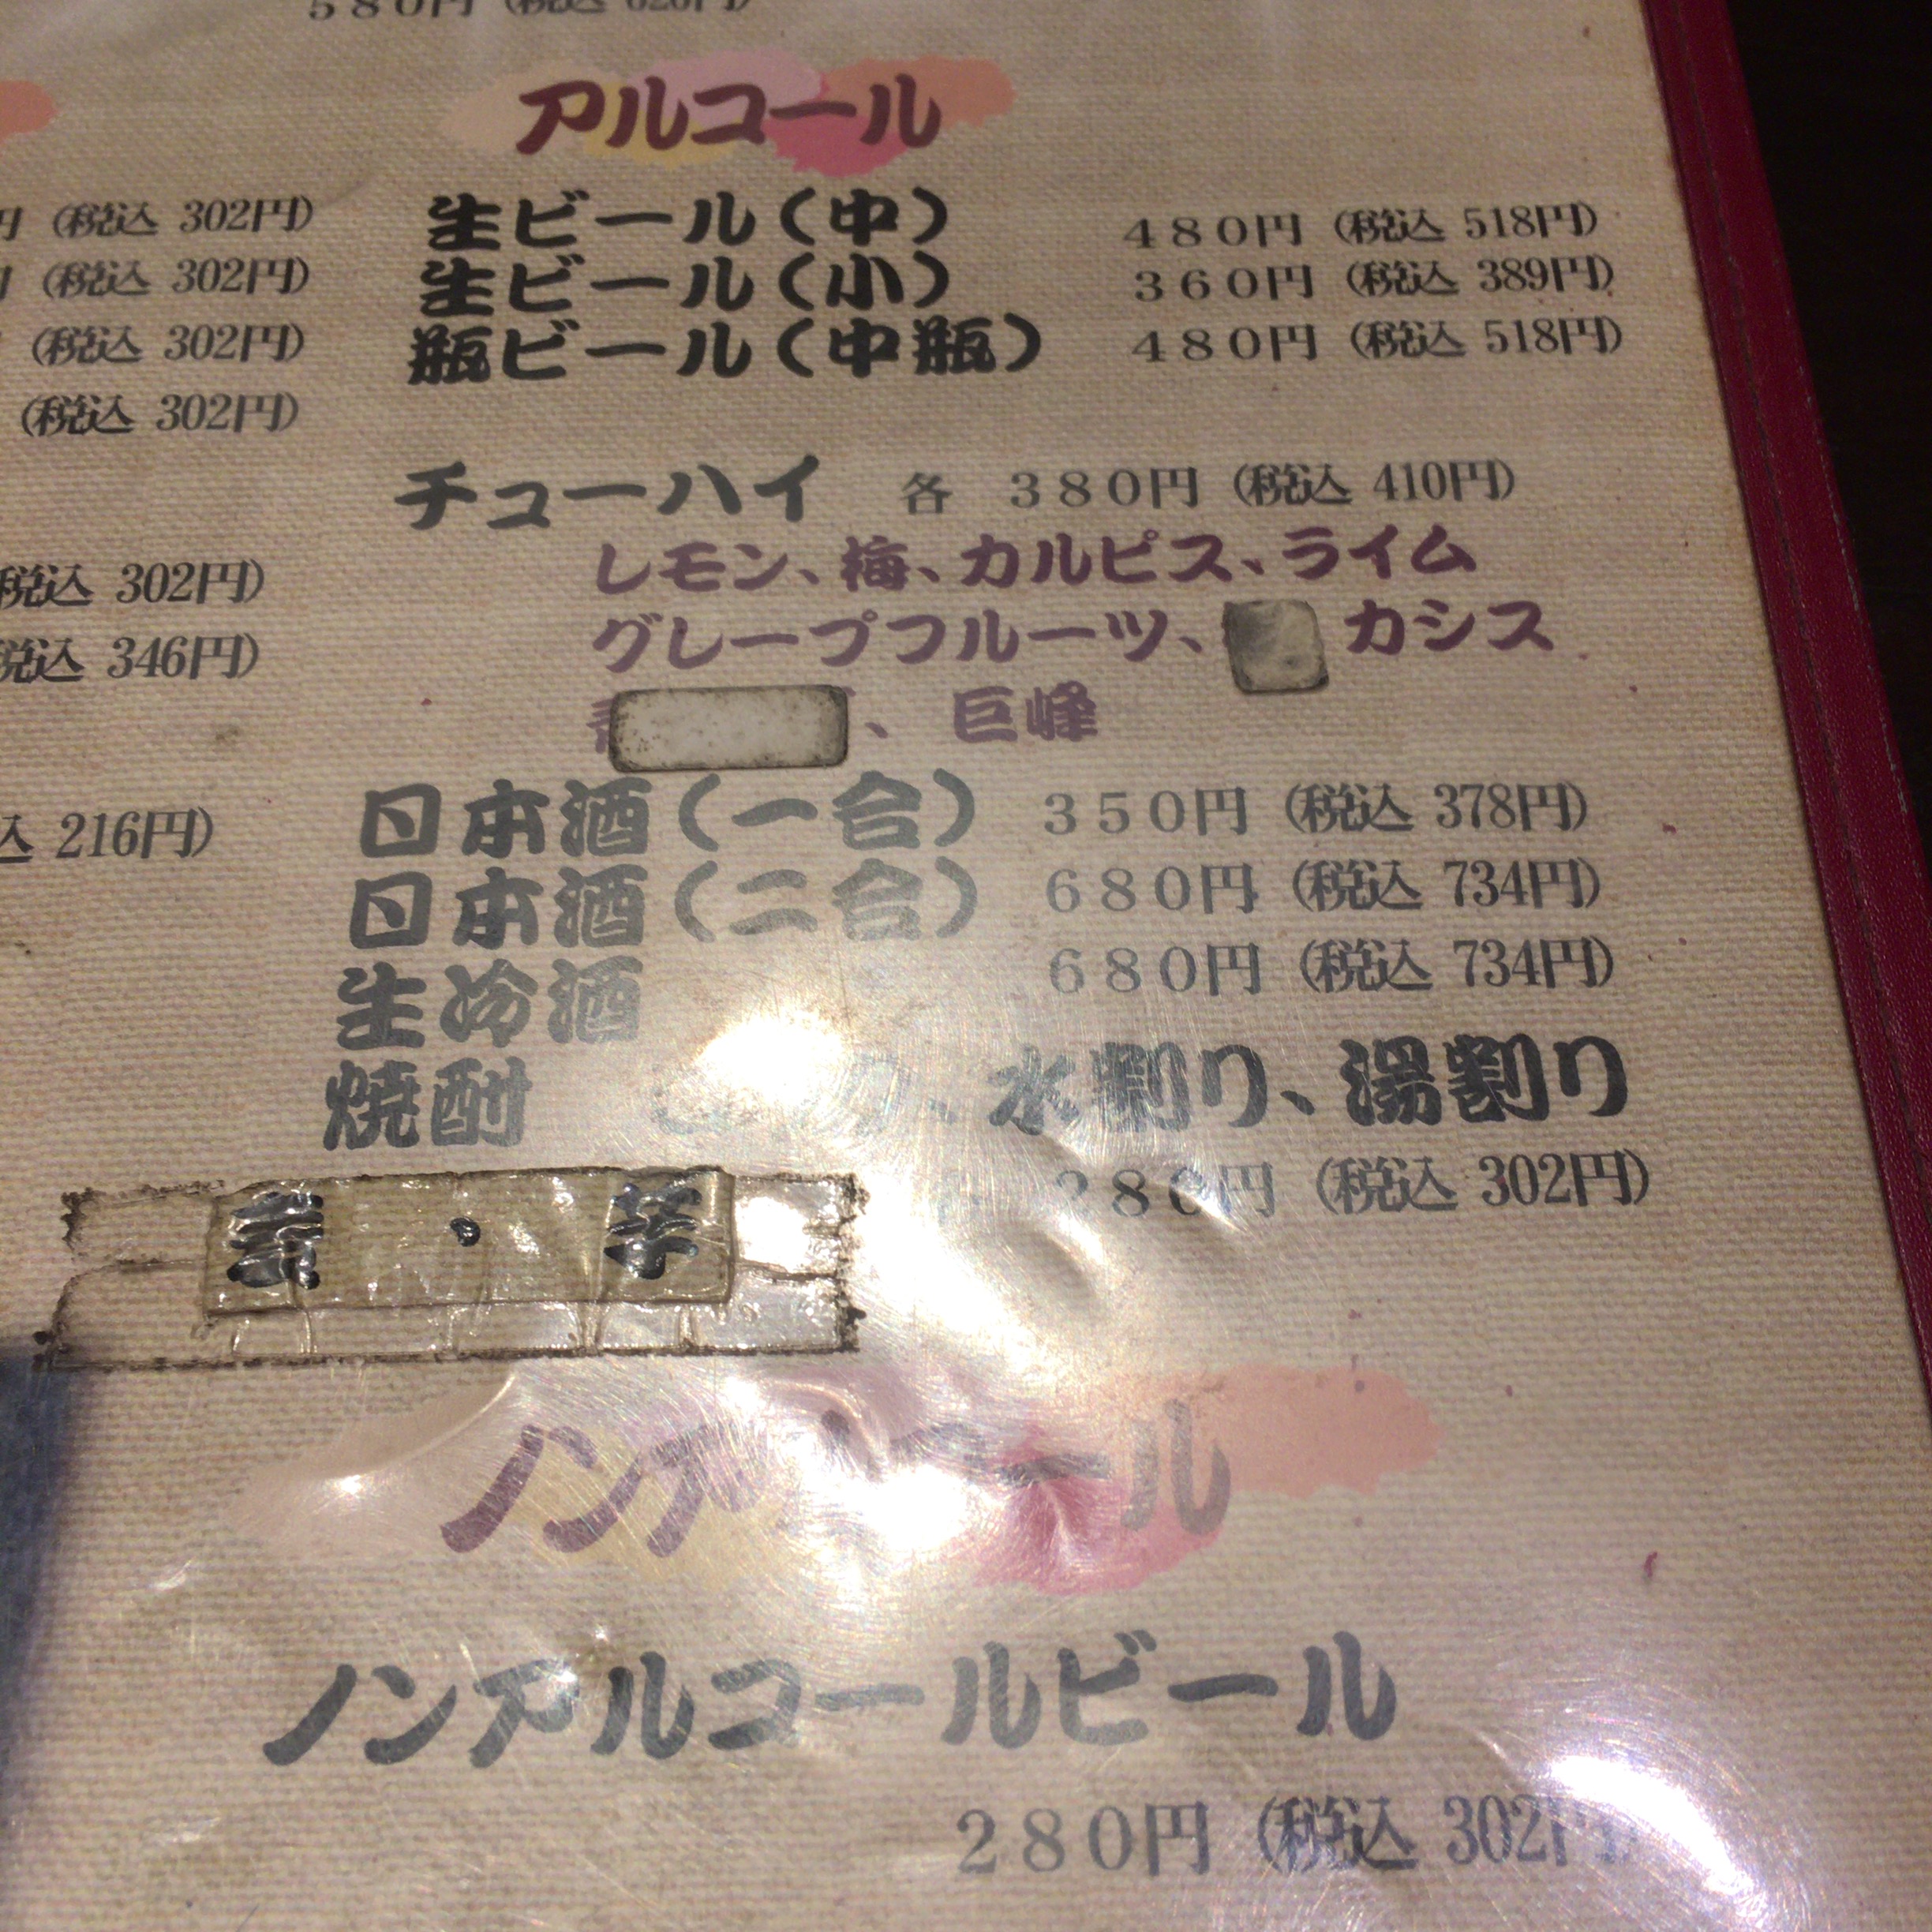 580円
アルコール
円 (税込 302円)
生ビール(中) 480円 (税込 518円)
(税込 302円)
生ビール(小) 360円 (税込 389円)
(税込 302円)
瓶ビール(中瓶) 480円 (税込 518円)
(税込 302円)
チューハイ 各 380円 (税込 410円)
レモン、梅、カルピス、ライム
(税込 302円)
グレープフルーツ、 カシス
税込 346円)
、 巨峰
日本酒(一合) 350円 (税込 378円)
込 216円)
日本酒(二合) 680円 (税込 734円)
生冷酒 680円 (税込 734円)
焼酎 、水割り、湯割り
280円 (税込 302円)
ノンアルコール
ノンアルコールビール
280円 (税込 302円)